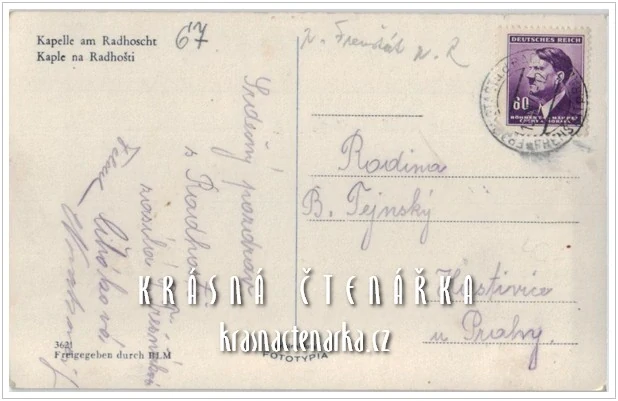 Kapelle am Radhoscht
Kaple na Radhošti
67
p. Frenštát p. R
DEUTSCHES REICH
60
BÖHMEN UND MÄHREN
Rodina
B. Tejnský
Hostivice
u Prahy
Srdečný pozdrav
s Radhoště
zasílá
3621
Freigegeben durch HLM
FOTOTYPIA
KRÁSNÁ ČTENÁŘKA
krasnactenarka.cz